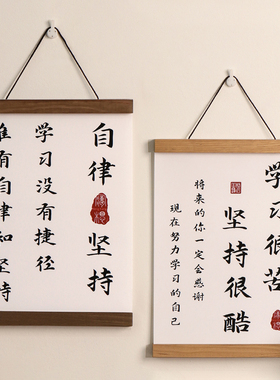 自律
坚持
学习没有捷径
唯有自律和坚持
学习很苦
坚持很酷
将来的你一定会感谢
现在努力学习的自己